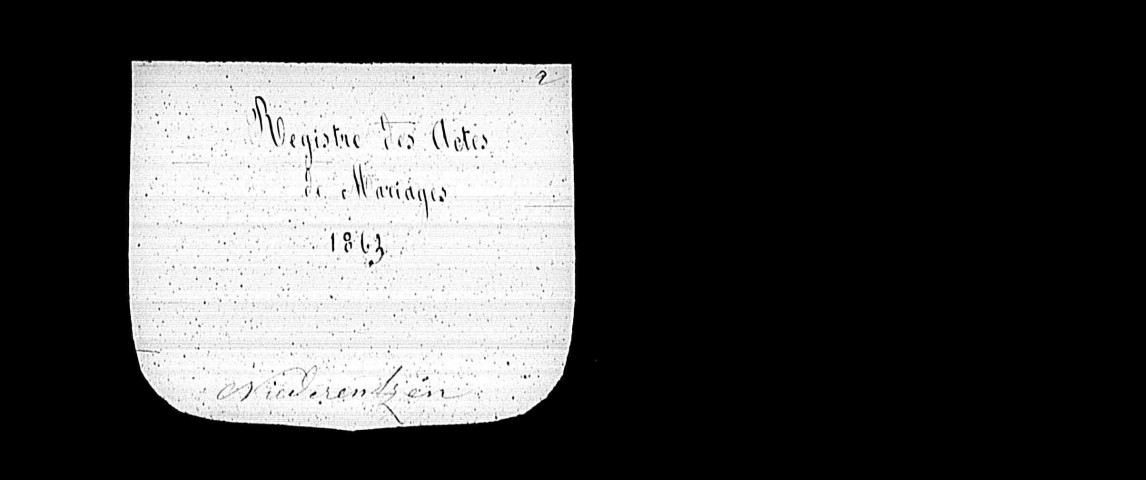 2
Registre des Actes
de Mariages
1863
Niederentzen